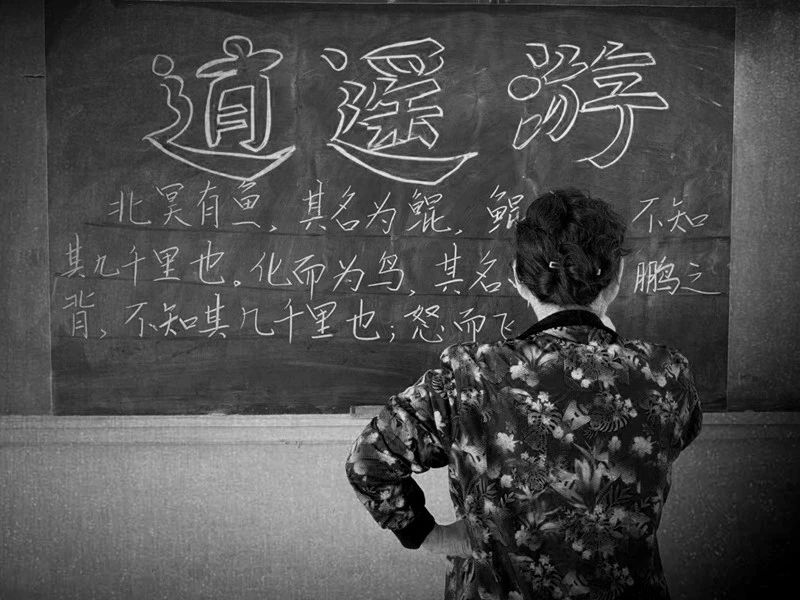 逍遥游
北冥有鱼，其名为鲲，鲲 不知
其九千里也。化而为鸟，其名 鹏之
背，不知其几千里也；怒而飞